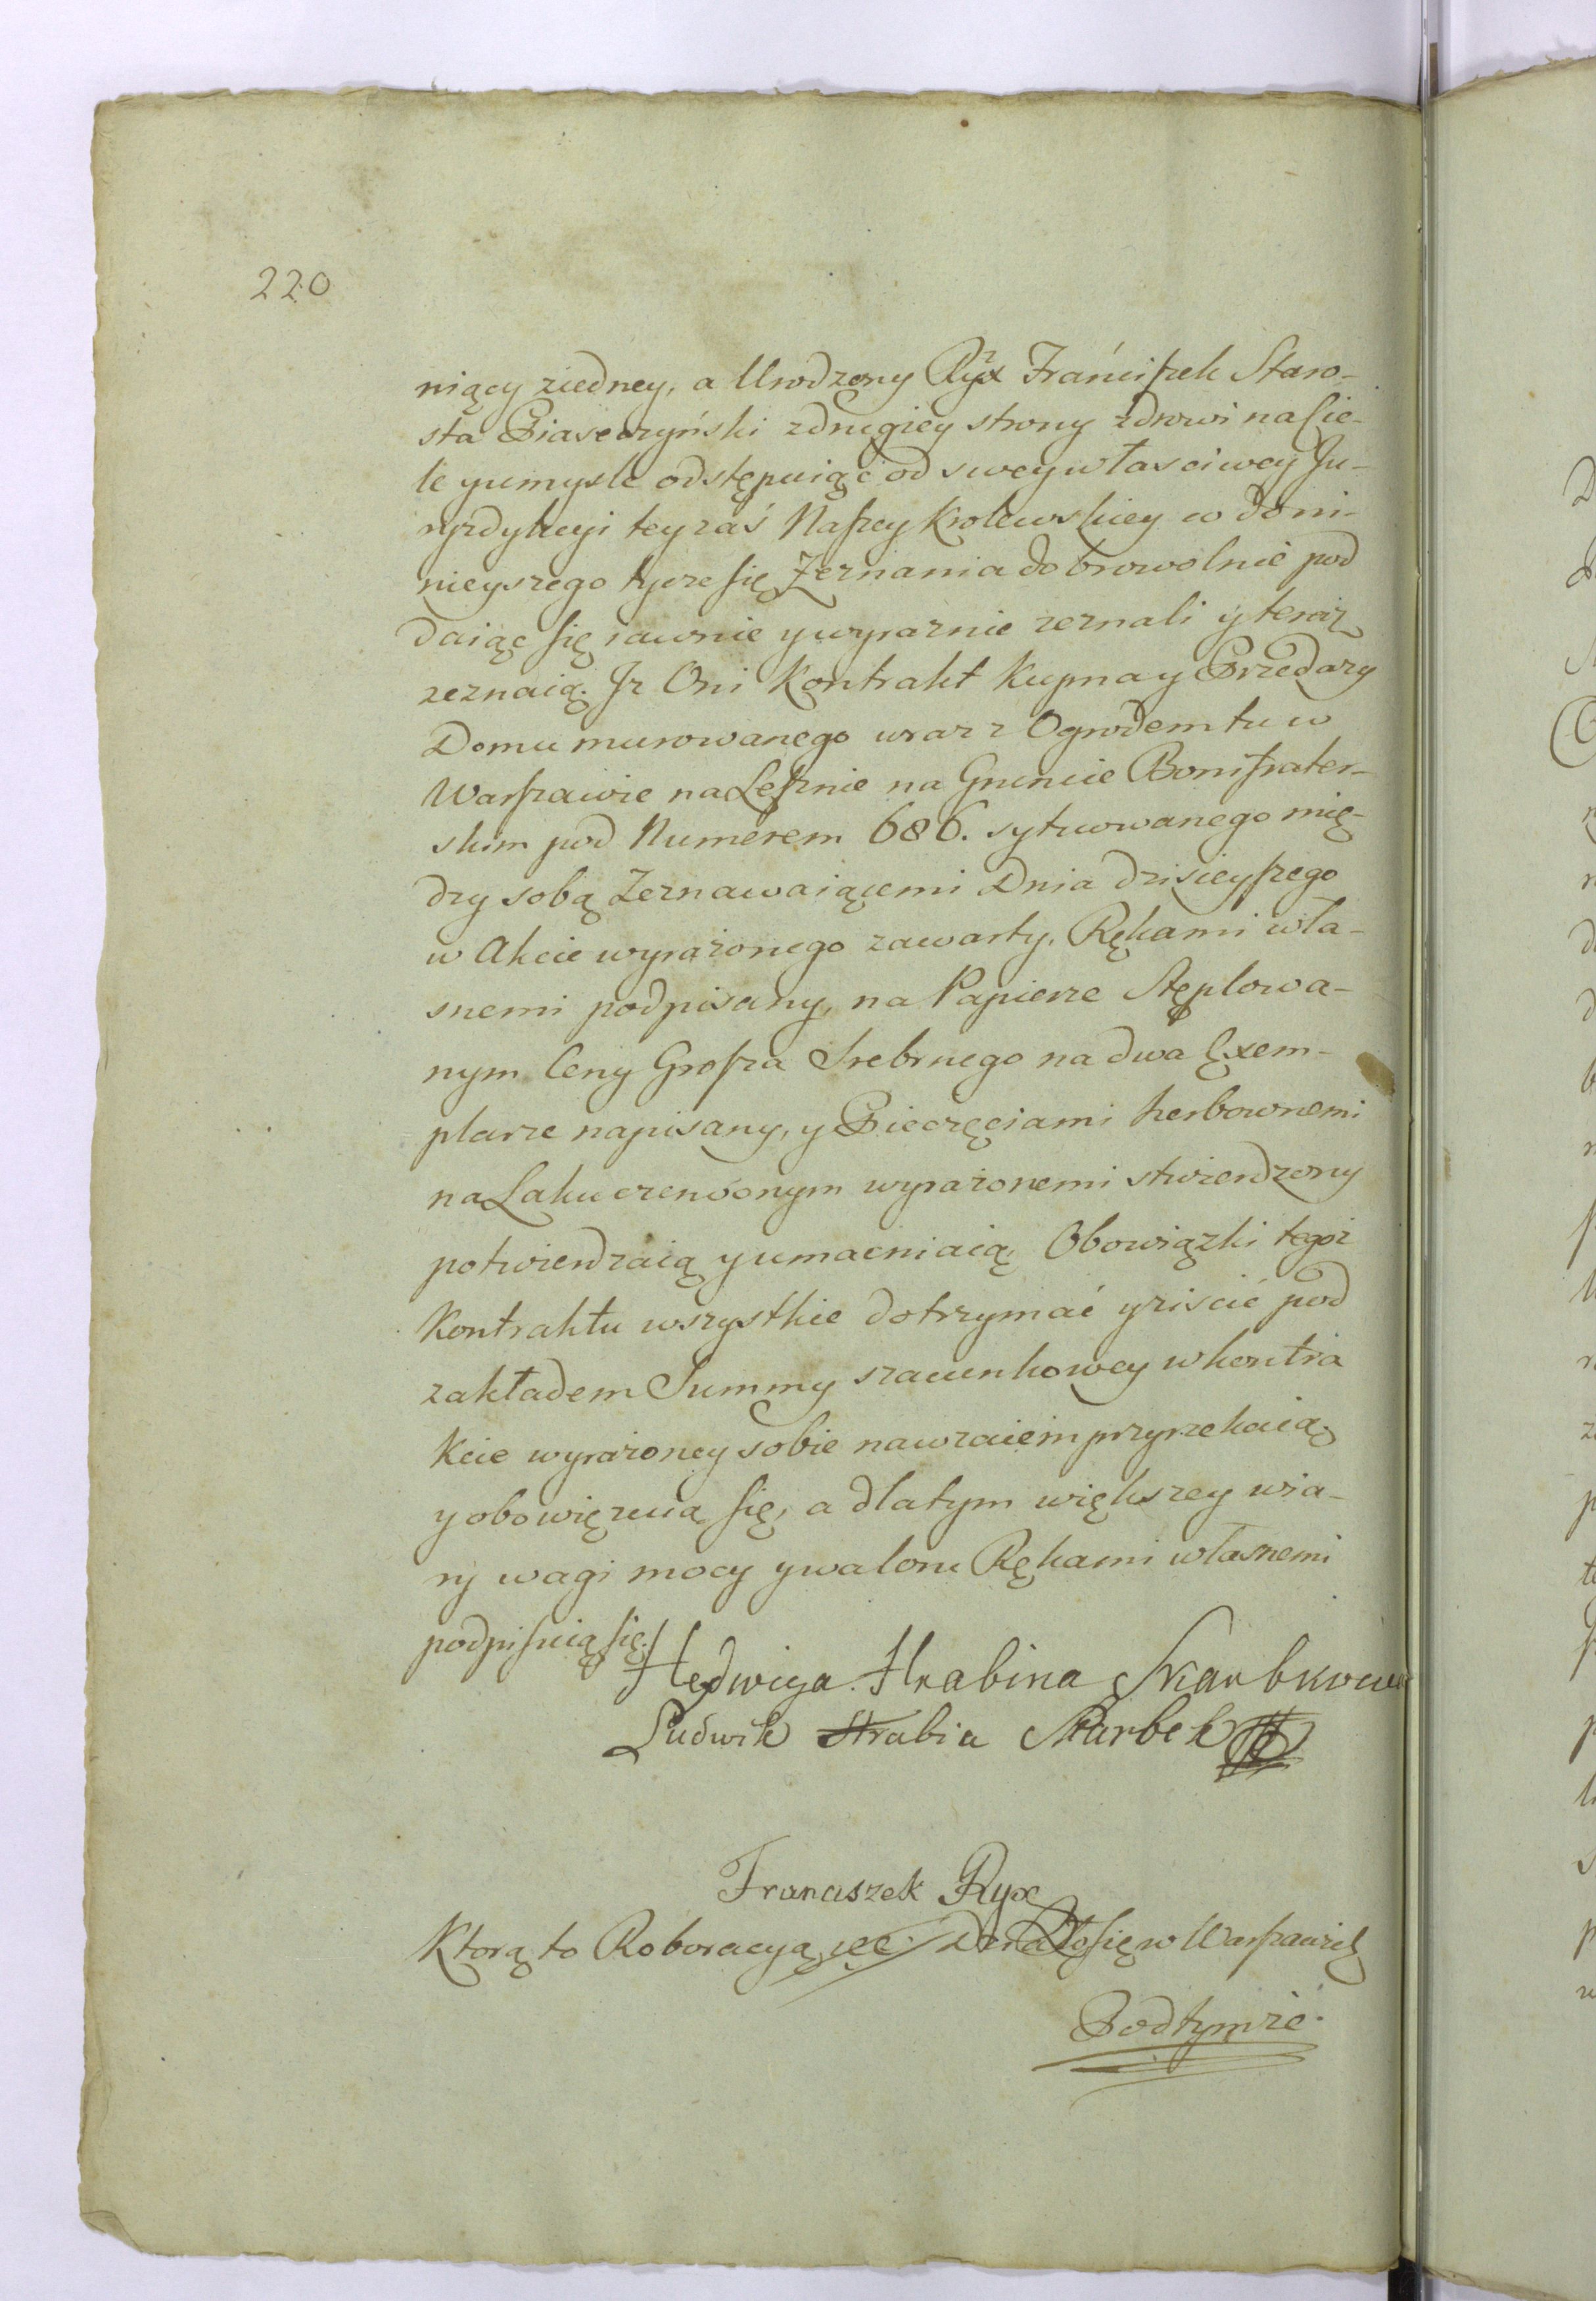 220
niący ziedney, a Urodzony Ryx Franciszek Staro-
sta Piaseczyński zdrugiey strony zdrowi na Cie-
le y umysle odstępuiąc od swey własciwey Ju-
ryzdykcyi tey zaś Naszey Krolewskiey w do ni-
nieyszego tycze się Zeznania dobrowolnie pod
daiąc się iawnie y wyraznie zeznali y teraz
zeznaią. Jz Oni Kontrakt Kupna y Przedazy
Domu murowanego wraz z Ogrodem tu w
Warszawie na Lesznie na Gruncie Bonifrater-
skim pod Numerem 686. sytuowanego mię-
dzy sobą Zeznawaiącemi Dnia dzisieyszego
w Akcie wyrazonego zawarty, Rękami wła-
snemi podpisany, na Papierze Stęplowa-
nym Ceny Grosza Srebrnego na dwa Exem-
plarze napisany, y Pieczęciami herbownemi
na Laku czerwonym wyrazonemi stwierdzony
potwierdzaią y umacniaią, Obowiązki tegoz
Kontraktu wszystkie dotrzymać y ziscić pod
zakładem Summy szacunkowey w kontra
kcie wyrazoney sobie nawzaiem przyrzekaią,
y obowięzuią się, a dla tym większey wia-
ry wagi mocy y waloru Rękami własnemi
podpisuią się.
Hedwiga Hrabina Skarbkowa
Ludwik Hrabia Skarbek
Franciszek Ryx
Ktorą to Roboracyą etc. Działo się w Warszawie
Podtymże